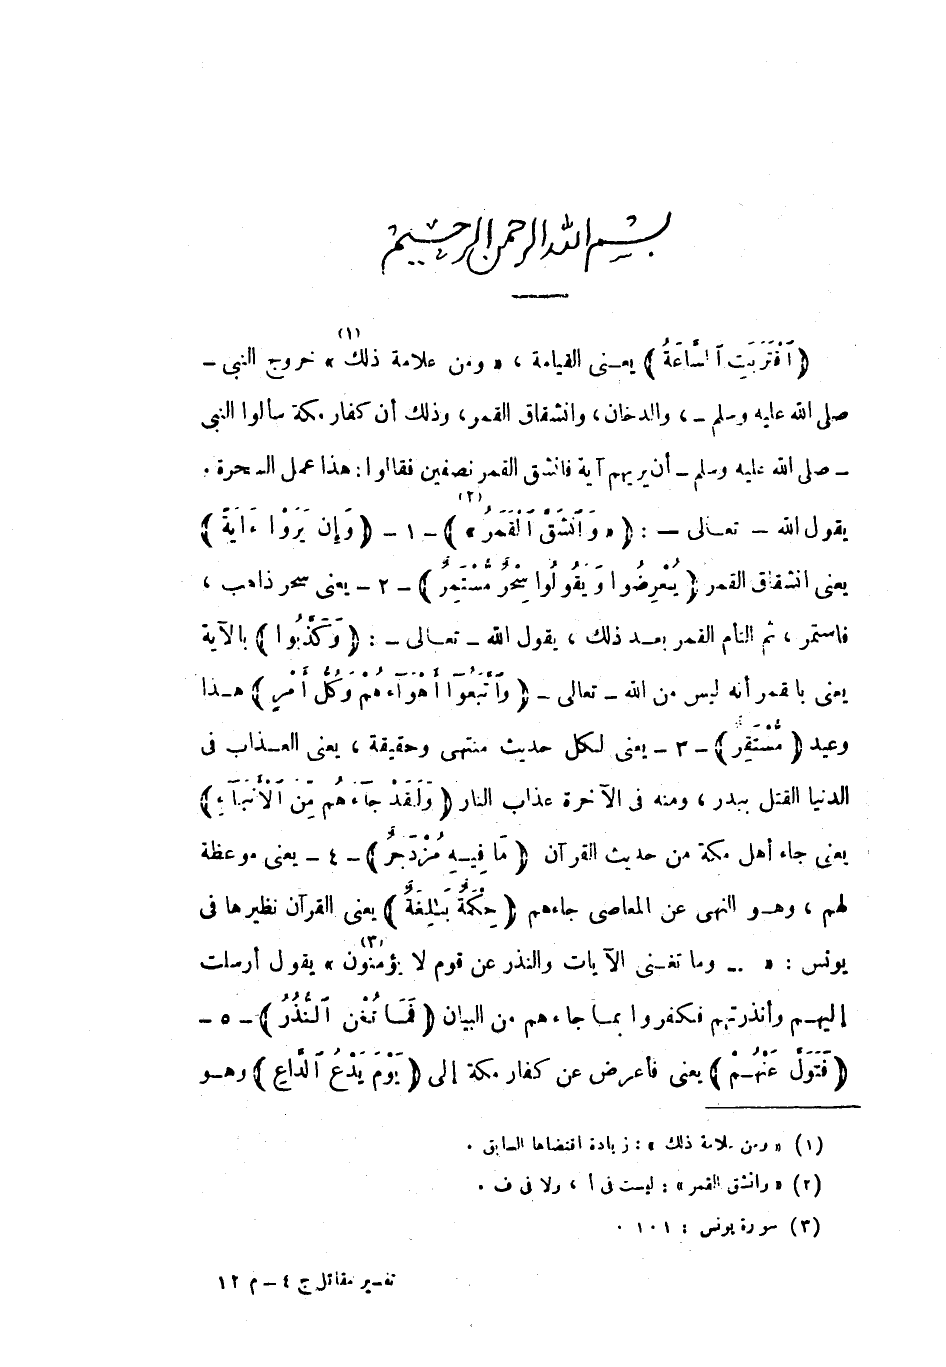 بسم الله الرحمن الرحيم
﴿ ٱقْتَرَبَتِ ٱلسَّاعَةُ ﴾ يعنى القيامة ، « ومن علامة ذلك (١) » خروج النبى –
صلى الله عليه وسلم – ، والدخان ، وانشقاق القمر ، وذلك أن كفار مكة سألوا النبى
– صلى الله عليه وسلم – أن يريهم آية فانشق القمر نصفين فقالوا : هذا عمل السحرة .
يقول الله – تعالى – : ﴿ « وَٱنشَقَّ ٱلْقَمَرُ (٢) » ﴾ – ١ – ﴿ وَإِن يَرَوْا ءَايَةً ﴾
يعنى انشقاق القمر ﴿ يُعْرِضُوا وَيَقُولُوا سِحْرٌ مُّسْتَمِرٌّ ﴾ – ٢ – يعنى سحر ذاهب ،
فاستمر ، ثم التأم القمر بعد ذلك ، يقول الله – تعالى – : ﴿ وَكَذَّبُوا ﴾ بالآية
يعنى بالقمر أنه ليس من الله – تعالى – ﴿ وَٱتَّبَعُوٓا أَهْوَآءَهُمْ وَكُلُّ أَمْرٍ ﴾ هذا
وعيد ﴿ مُّسْتَقِرٌّ ﴾ – ٣ – يعنى لكل حديث منتهى وحقيقة ، يعنى العذاب فى
الدنيا القتل ببدر ، ومنه فى الآخرة عذاب النار ﴿ وَلَقَدْ جَآءَهُم مِّنَ ٱلْأَنبَآءِ ﴾
يعنى جاء أهل مكة من حديث القرآن ﴿ مَا فِيهِ مُزْدَجَرٌ ﴾ – ٤ – يعنى موعظة
لهم ، وهو النهى عن المعاصى جاءهم ﴿ حِكْمَةٌ بَـٰلِغَةٌ ﴾ يعنى القرآن نظيرها فى
يونس : « ... وما تغنى الآيات والنذر عن قوم لا يؤمنون (٣) » يقول أرسلت
إليهم وأنذرتهم فكفروا بما جاءهم من البيان ﴿ فَمَا تُغْنِ ٱلنُّذُرُ ﴾ – ٥ –
﴿ فَتَوَلَّ عَنْهُمْ ﴾ يعنى فأعرض عن كفار مكة إلى ﴿ يَوْمَ يَدْعُ ٱلدَّاعِ ﴾ وهو
(١) « ومن علامة ذلك » : زيادة اقتضاها السابق .
(٢) « وانشق القمر » : ليست فى أ ، ولا فى ف .
(٣) سورة يونس : ١٠١ .
تفسير مقاتل ج ٤ – م ١٢